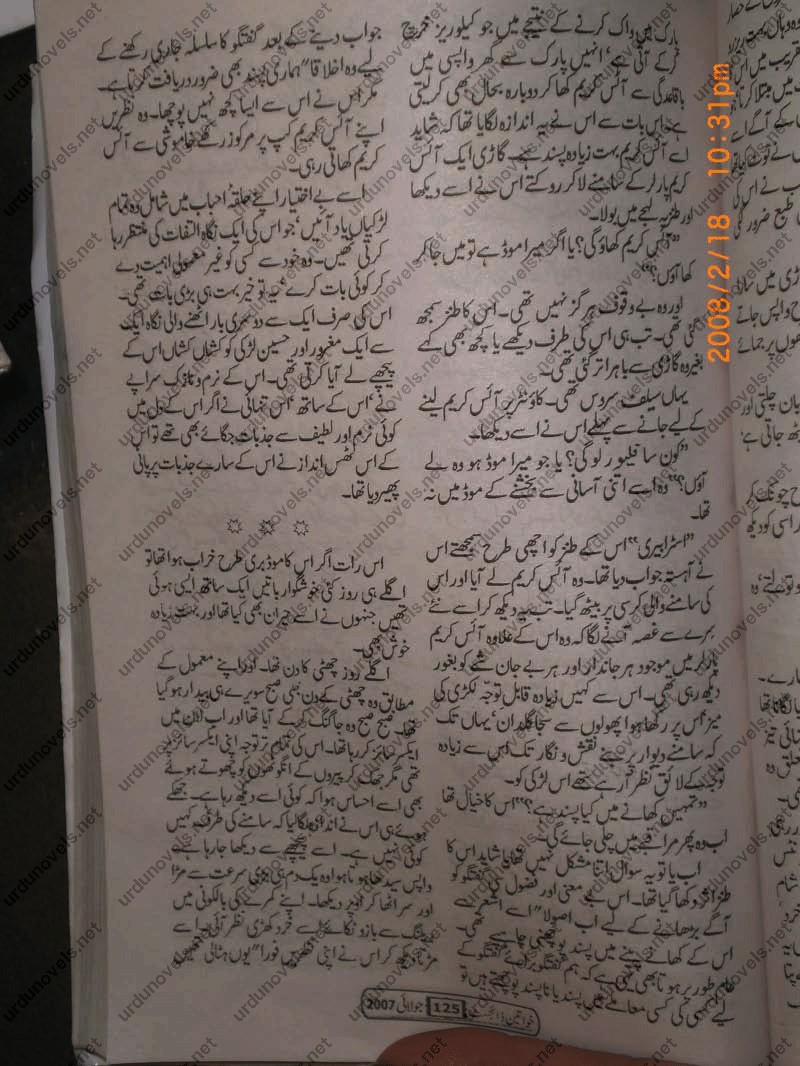 پارک میں واک کرنے کے نتیجے میں جو کیلوریز خرچ
کر کے آتی ہے، انہیں پارک سے گھر واپسی میں
باقاعدگی سے آئس کریم کھا کر دوبارہ بحال بھی کر لیتی
ہے۔ اس بات سے اس نے یہ اندازہ لگایا تھا کہ شاید
اسے آئس کریم بہت زیادہ پسند ہے۔ گاڑی ایک آئس
کریم پارلر کے سامنے لا کر روکتے اس نے اسے دیکھا
اور طنزیہ لہجے میں بولا۔
"آئس کریم کھاؤ گی؟ یا اگر میرا موڈ ہے تو میں جا کر
کھا آؤں؟"
اور وہ بے وقوف ہرگز نہیں تھی۔ اس کا طنز سمجھ
گئی تھی۔ تب ہی اس کی طرف دیکھے یا کچھ بھی کہے
بغیر وہ گاڑی سے باہر اتر گئی تھی۔
یہاں سیلف سروس تھی۔ کاؤنٹر پر آئس کریم لینے
کے لیے جانے سے پہلے اس نے اسے دیکھا۔
"کون سا فلیور لو گی؟ یا جو میرا موڈ ہو وہ لے
آؤں؟" وہ اسے اتنی آسانی سے بخشنے کے موڈ میں نہ
تھا۔
"اسٹرابیری" اس کے طنز کو اچھی طرح سمجھتے اس
نے آہستہ جواب دیا تھا۔ وہ آئس کریم لے آیا اور اس
کی سامنے والی کرسی پر بیٹھ گیا۔ تب یہ دیکھ کر اسے نئے
سرے سے غصہ آنے لگا کہ وہ اس کے علاوہ آئس کریم
پارلر میں موجود ہر جاندار اور ہر بے جان شے کو بغور
دیکھ رہی تھی۔ اس سے کہیں زیادہ قابل توجہ لکڑی کی
میز، اس پر رکھا ہوا پھولوں سے سجا گلدان، یہاں تک
کہ سامنے دیوار پر بنے نقش و نگار تک اس سے زیادہ
توجہ کے لائق نظر آ رہے تھے اس لڑکی کو۔
"تمہیں کھانے میں کیا پسند ہے؟" اس کا خیال تھا
اب وہ پھر مراقبے میں چلی جائے گی۔
اب یا تو یہ سوال اتنا مشکل نہیں تھا یا شاید اس کا
طنز اثر دکھا گیا تھا۔ اس بے معنی اور فضول کی گفتگو کو
آگے بڑھانے کے لیے اب اصولاً "اسے اشعر سے
اس کے کھانے پینے میں پسند پوچھنی چاہیے تھی۔
عام طور پر ہوتا بھی یہی ہے کہ ہم گفتگو برائے گفتگو کے
لیے کسی کی کسی معاملے میں پسند یا ناپسند پوچھتے ہیں تو
جواب دینے کے بعد گفتگو کا سلسلہ جاری رکھنے کے
لیے وہ اخلاقاً "ہماری پسند بھی ضرور دریافت کرتا ہے۔
مگر اس نے اس سے ایسا کچھ نہیں پوچھا۔ وہ نظریں
اپنے آئس کریم کپ پر مرکوز رکھے خاموشی سے آئس
کریم کھاتی رہی۔
اسے بے اختیار اپنے حلقہ احباب میں شامل وہ تمام
لڑکیاں یاد آئیں، جو اس کی ایک نگاہ التفات کی منتظر رہا
کرتی تھیں۔ وہ خود سے کسی کو غیر معمولی اہمیت دے
کر کوئی بات کرے، یہ تو خیر بہت ہی بڑی بات تھی۔
اس کی صرف ایک سے دوسری بار اٹھنے والی نگاہ ایک
سے ایک مغرور اور حسین لڑکی کو کشاں کشاں اس کے
پیچھے لے آیا کرتی تھی۔ اس کے نرم و نازک سراپے
نے، اس کے ساتھ، اس تنہائی نے اگر اس کے دل میں
کوئی نرم اور لطیف سے جذبات جگائے بھی تھے تو اس
کے اس ٹھس انداز نے اس کے سارے جذبات پر پانی
پھیر دیا تھا۔
اس رات اگر اس کا موڈ بری طرح خراب ہوا تھا تو
اگلے ہی روز کئی خوشگوار باتیں ایک ساتھ ایسی ہوئی
تھیں جنہوں نے اسے حیران بھی کیا تھا اور بہت زیادہ
خوش بھی۔
اگلے روز چھٹی کا دن تھا۔ اور اپنے معمول کے
مطابق وہ چھٹی کے دن بھی صبح سویرے ہی بیدار ہو گیا
تھا۔ صبح صبح وہ جاگنگ کر کے آیا تھا اور اب لان میں
ایکسرسائز کر رہا تھا۔ اس کی تمام تر توجہ اپنی ایکسرسائز پر
تھی مگر جھک کر پیروں کے انگوٹھوں کو چھوتے ہوئے
بھی اسے احساس ہوا کہ کوئی اسے دیکھ رہا ہے۔ جھکے
ہوئے ہی اس نے اندازہ لگا لیا کہ سامنے کی طرف کہیں
کوئی نہیں ہے۔ اسے پیچھے سے دیکھا جا رہا ہے
واپس سیدھا ہوتا ہوا وہ یک دم ہی بڑی سرعت سے مڑا
اور سر اٹھا کر اوپر دیکھا۔ اپنے کمرے کی بالکونی میں
ریلنگ سے بازو ٹکائے اسے خرد کھڑی نظر آئی۔ اسے
مڑتا دیکھ کر اس نے اپنی نظریں فوراً "یوں ہٹالی تھیں
خواتین ڈائجسٹ 125 جولائی 2007
2008/2/18 10:31pm
urdunovels.net